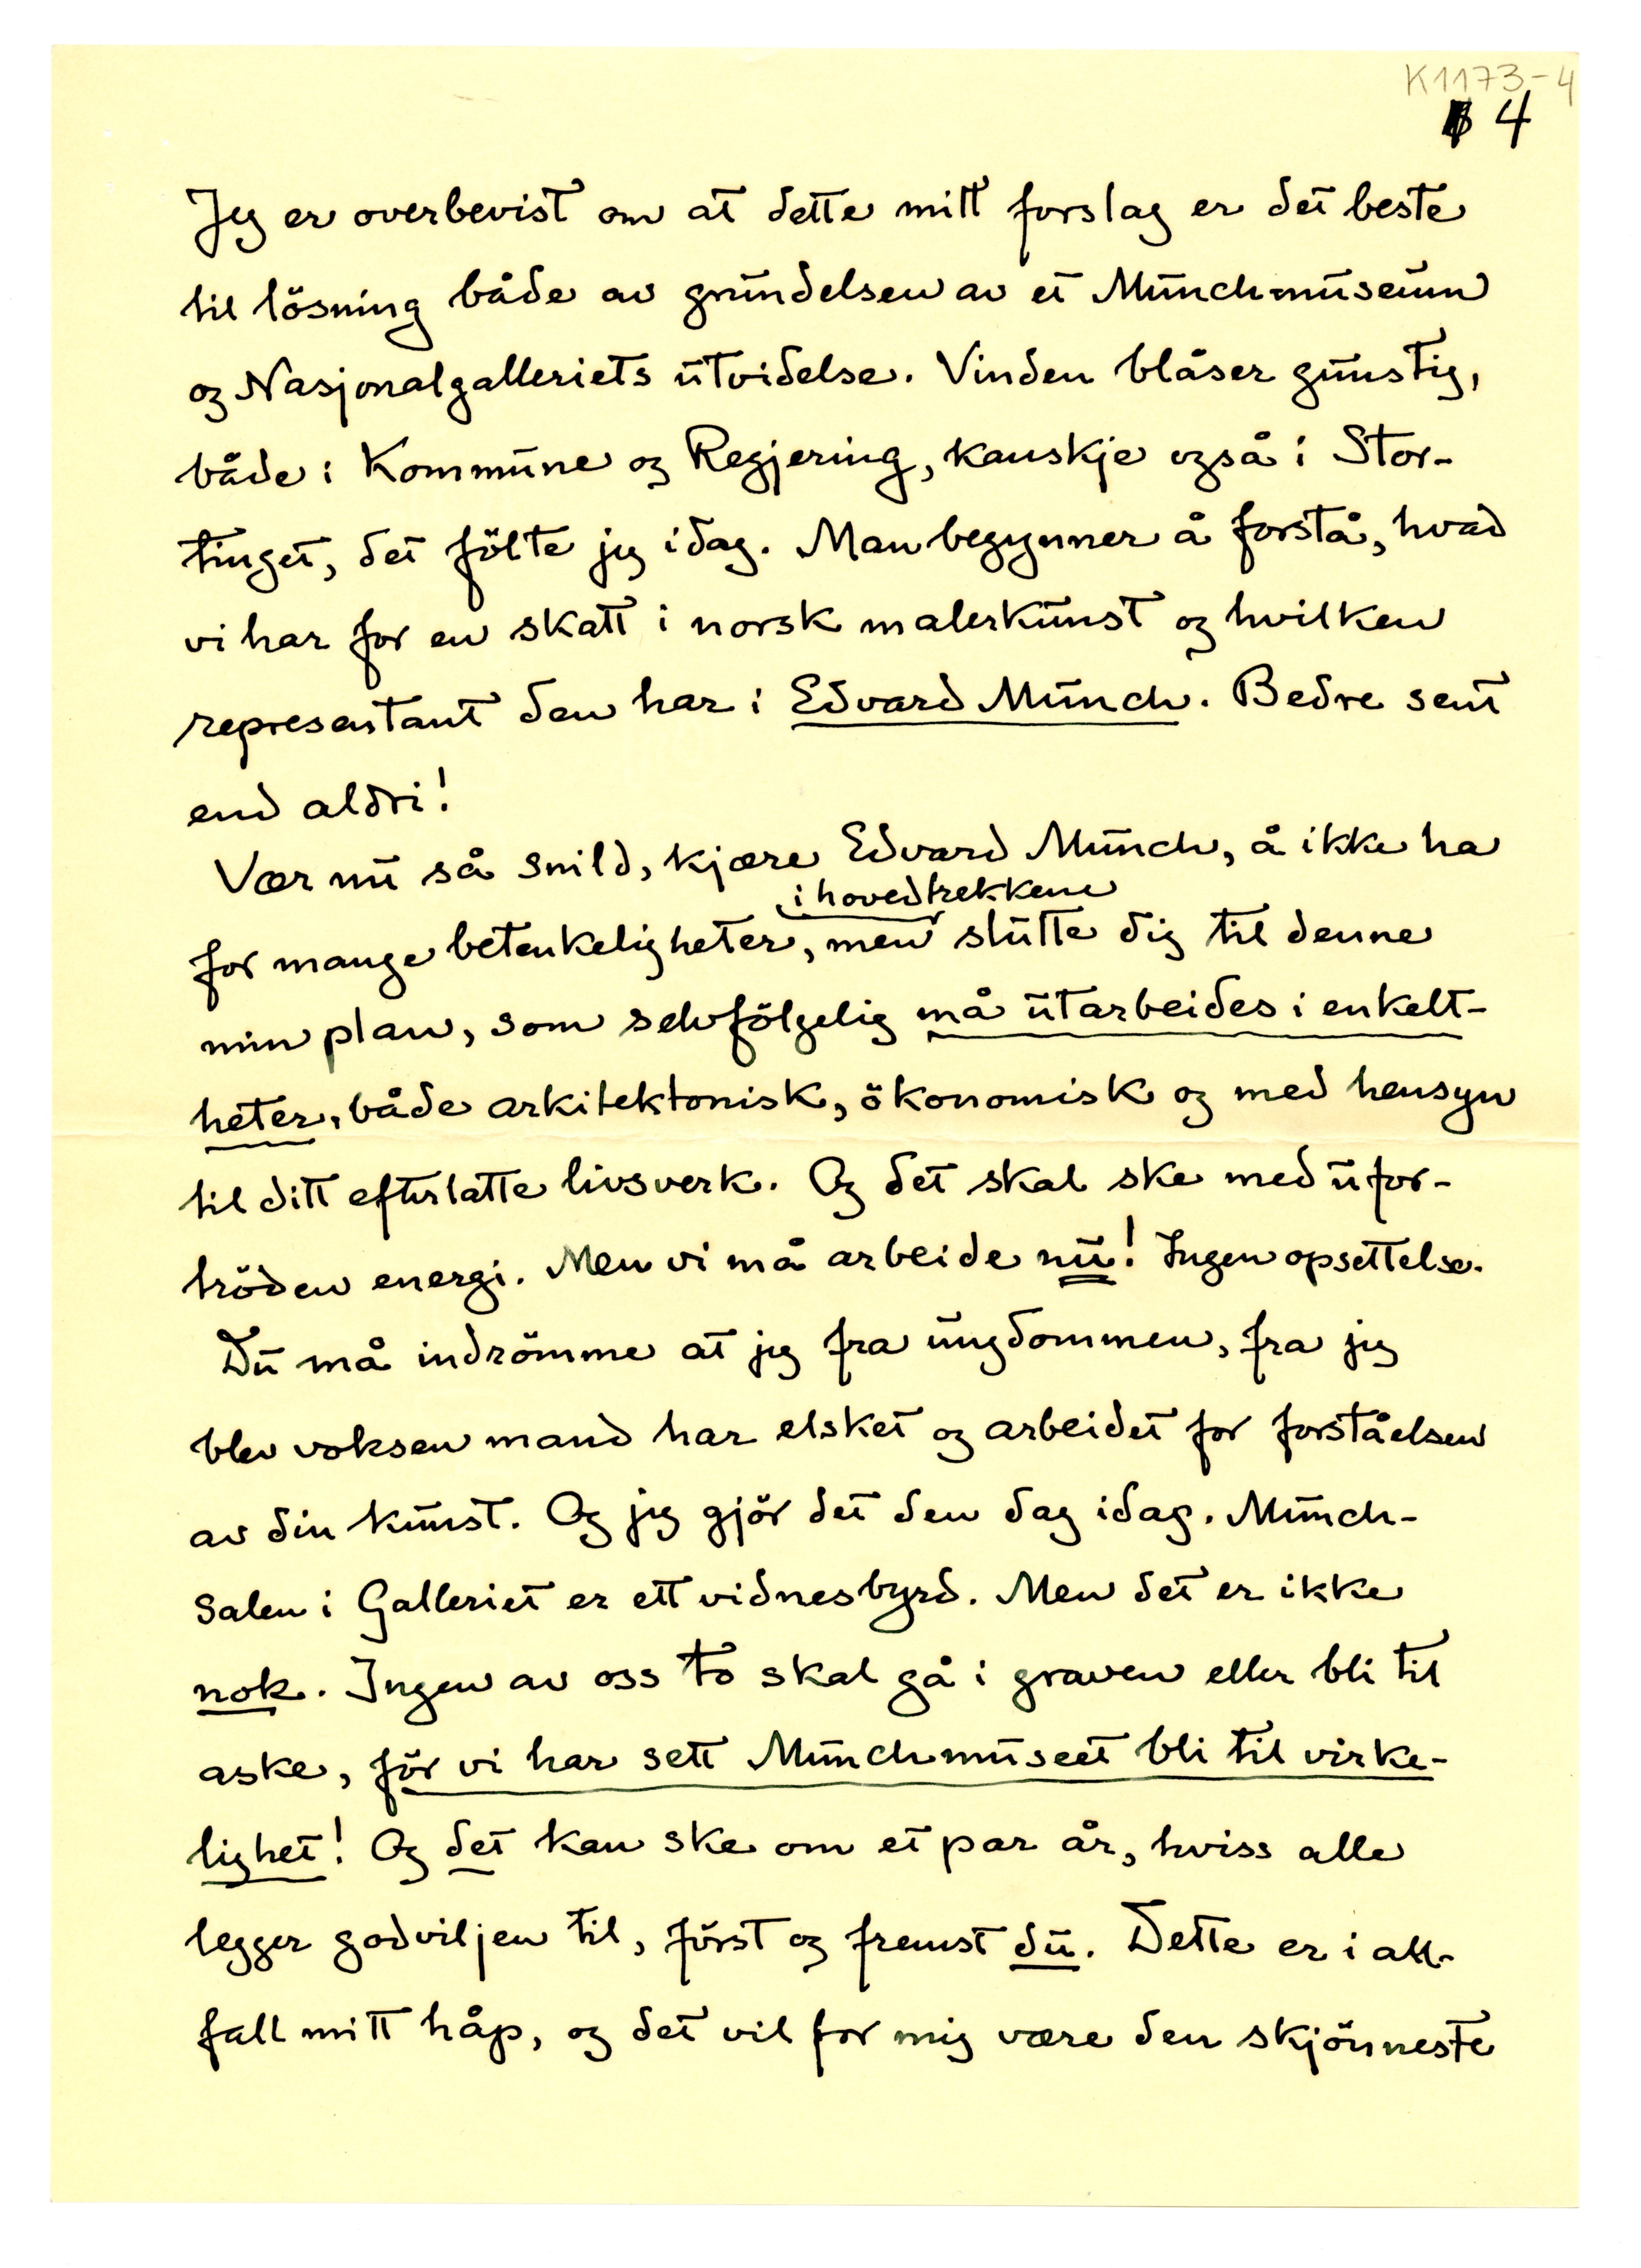 K1173-4
4
Jeg er overbevist om at dette mitt forslag er det beste
til lösning både av grundelsen av et Munchmuseum
og Nasjonalgalleriets utvidelse. Vinden blåser gunstig,
både i Kommune og Regjering, kanskje også i Stor-
tinget, det fölte jeg idag. Man begynner å forstå, hvad
vi har for en skatt i norsk malerkunst og hvilken
representant den har i Edvard Munch. Bedre sent
end aldri!
Vær nu så snild, kjære Edvard Munch, å ikke ha
i hovedtrekkene
for mange betenkeligheter, men slutte dig til denne
min plan, som selvfölgelig må utarbeides i enkelt-
heter, både arkitektonisk, ökonomisk og med hensyn
til ditt efterlatte livsverk. Og det skal ske med ufor-
tröden energi. Men vi må arbeide nu! Ingen opsettelse.
Du må indrömme at jeg fra ungdommen, fra jeg
blev voksen mand har elsket og arbeidet for forståelsen
av din kunst. Og jeg gjör det den dag idag. Munch-
salen i Galleriet er ett vidnesbyrd. Men det er ikke
nok. Ingen av oss to skal gå i graven eller bli til
aske, för vi har sett Munchmuseet bli til virke-
lighet! Og det kan ske om et par år, hviss alle
legger godviljen til, först og fremst du. Dette er i all-
fall mitt håp, og det vil for mig være den skjönneste